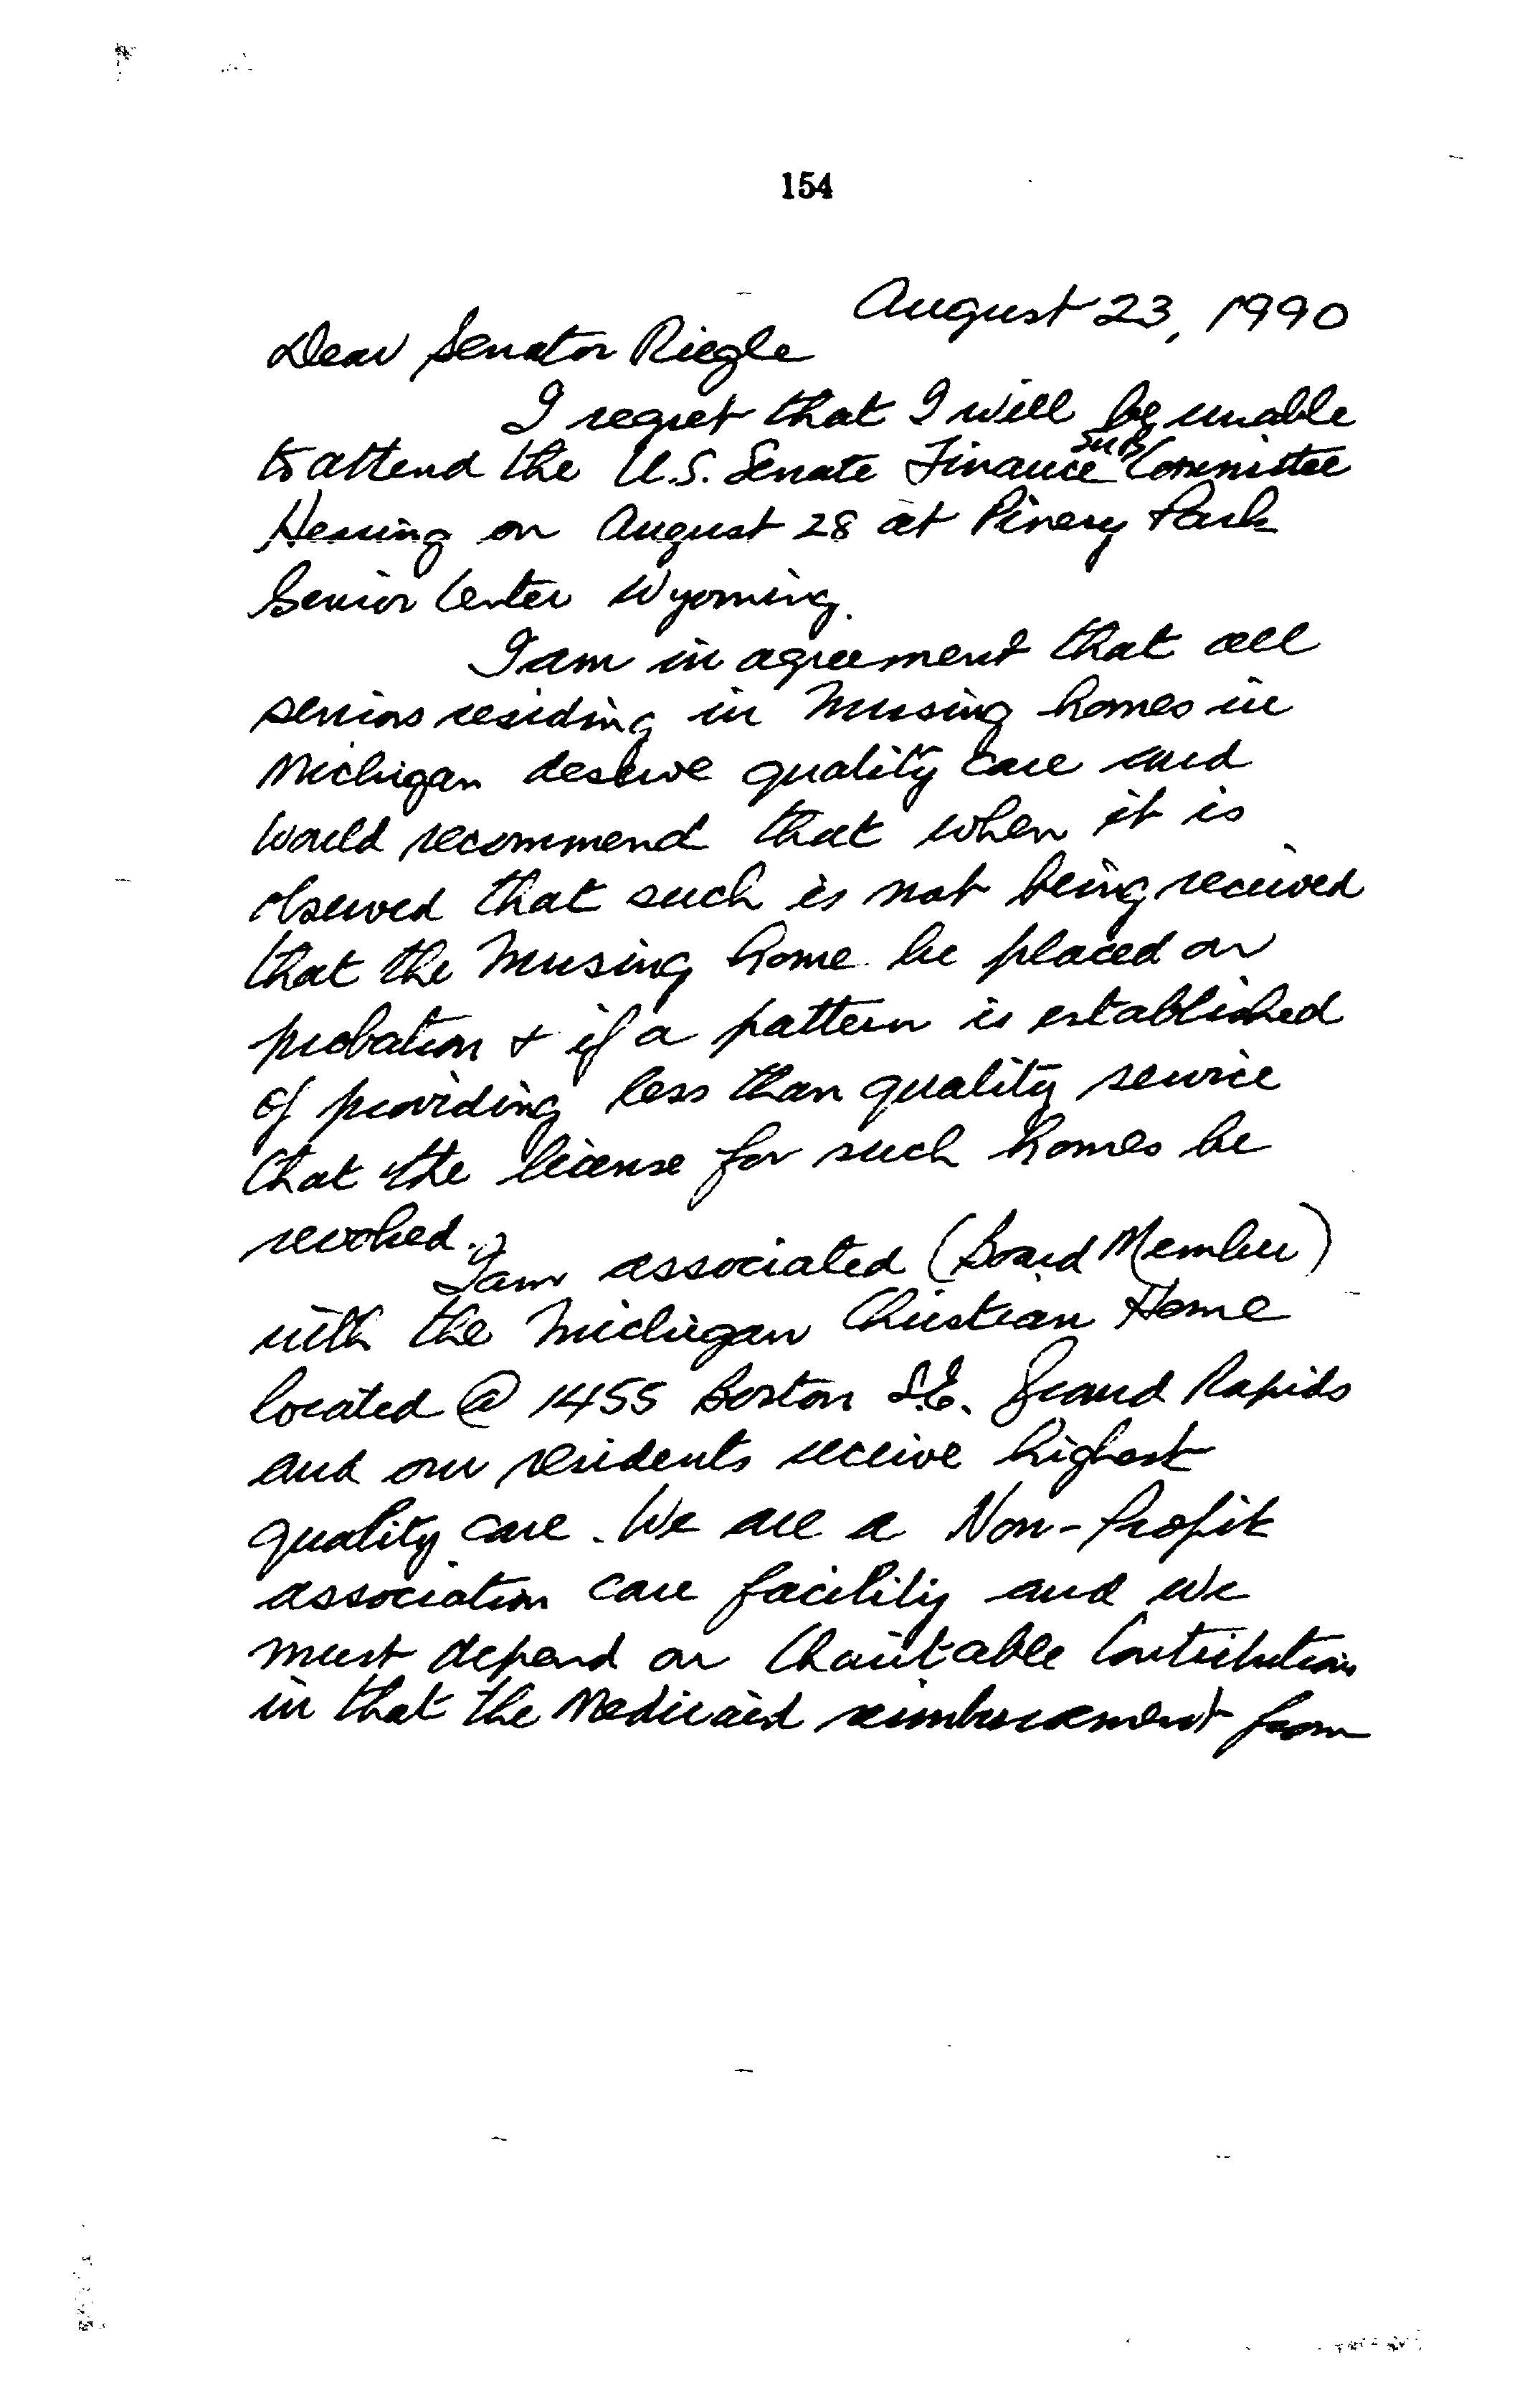 154
August 23, 1990
Dear Senator Riegle
I regret that I will be unable
to attend the U.S. Senate Finance Sub Committee
Hearing on August 28 at Pinery Park
Senior Center Wyoming.
I am in agreement that all
seniors residing in Nursing homes in
Michigan deserve quality care and
would recommend that when it is
observed that such is not being received
that the Nursing home be placed on
probation + if a pattern is established
of providing less than quality service
that the license for such homes be
revoked.
I am associated (Board Member)
with the Michigan Christian Home
located @ 1455 Boston S.E. Grand Rapids
and our residents receive highest
quality care. We are a Non-Profit
association care facility and we
must depend on Charitable Contributions
in that the Medicaid reimbursement from